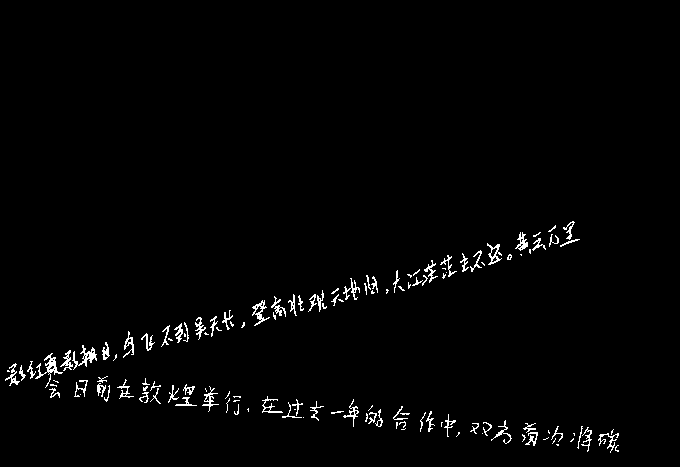 影红霞影朝日,鸟飞不到吴天长,登高壮观天地间,大江茫茫去不还。黄云万里
会日前在敦煌举行,在过去一年的合作中,双方首次将碳